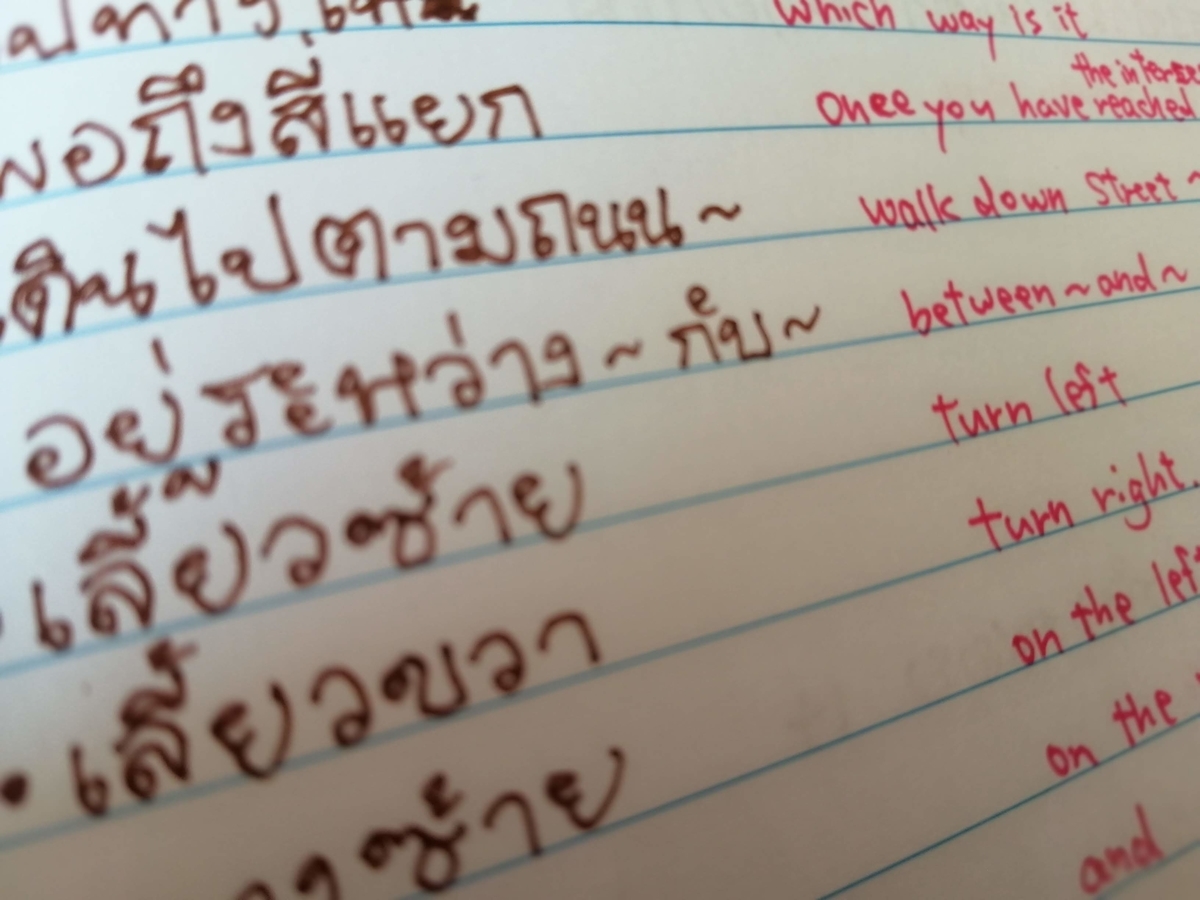 ไปทาง which way is it
พอถึงสี่แยก once you have reached the
เดินไปตามถนน~ walk down street~
อยู่ระหว่าง~กับ~ between~and~
เลี้ยวซ้าย turn left
• เลี้ยวขวา turn right.
ซ้าย on the left
on the
and